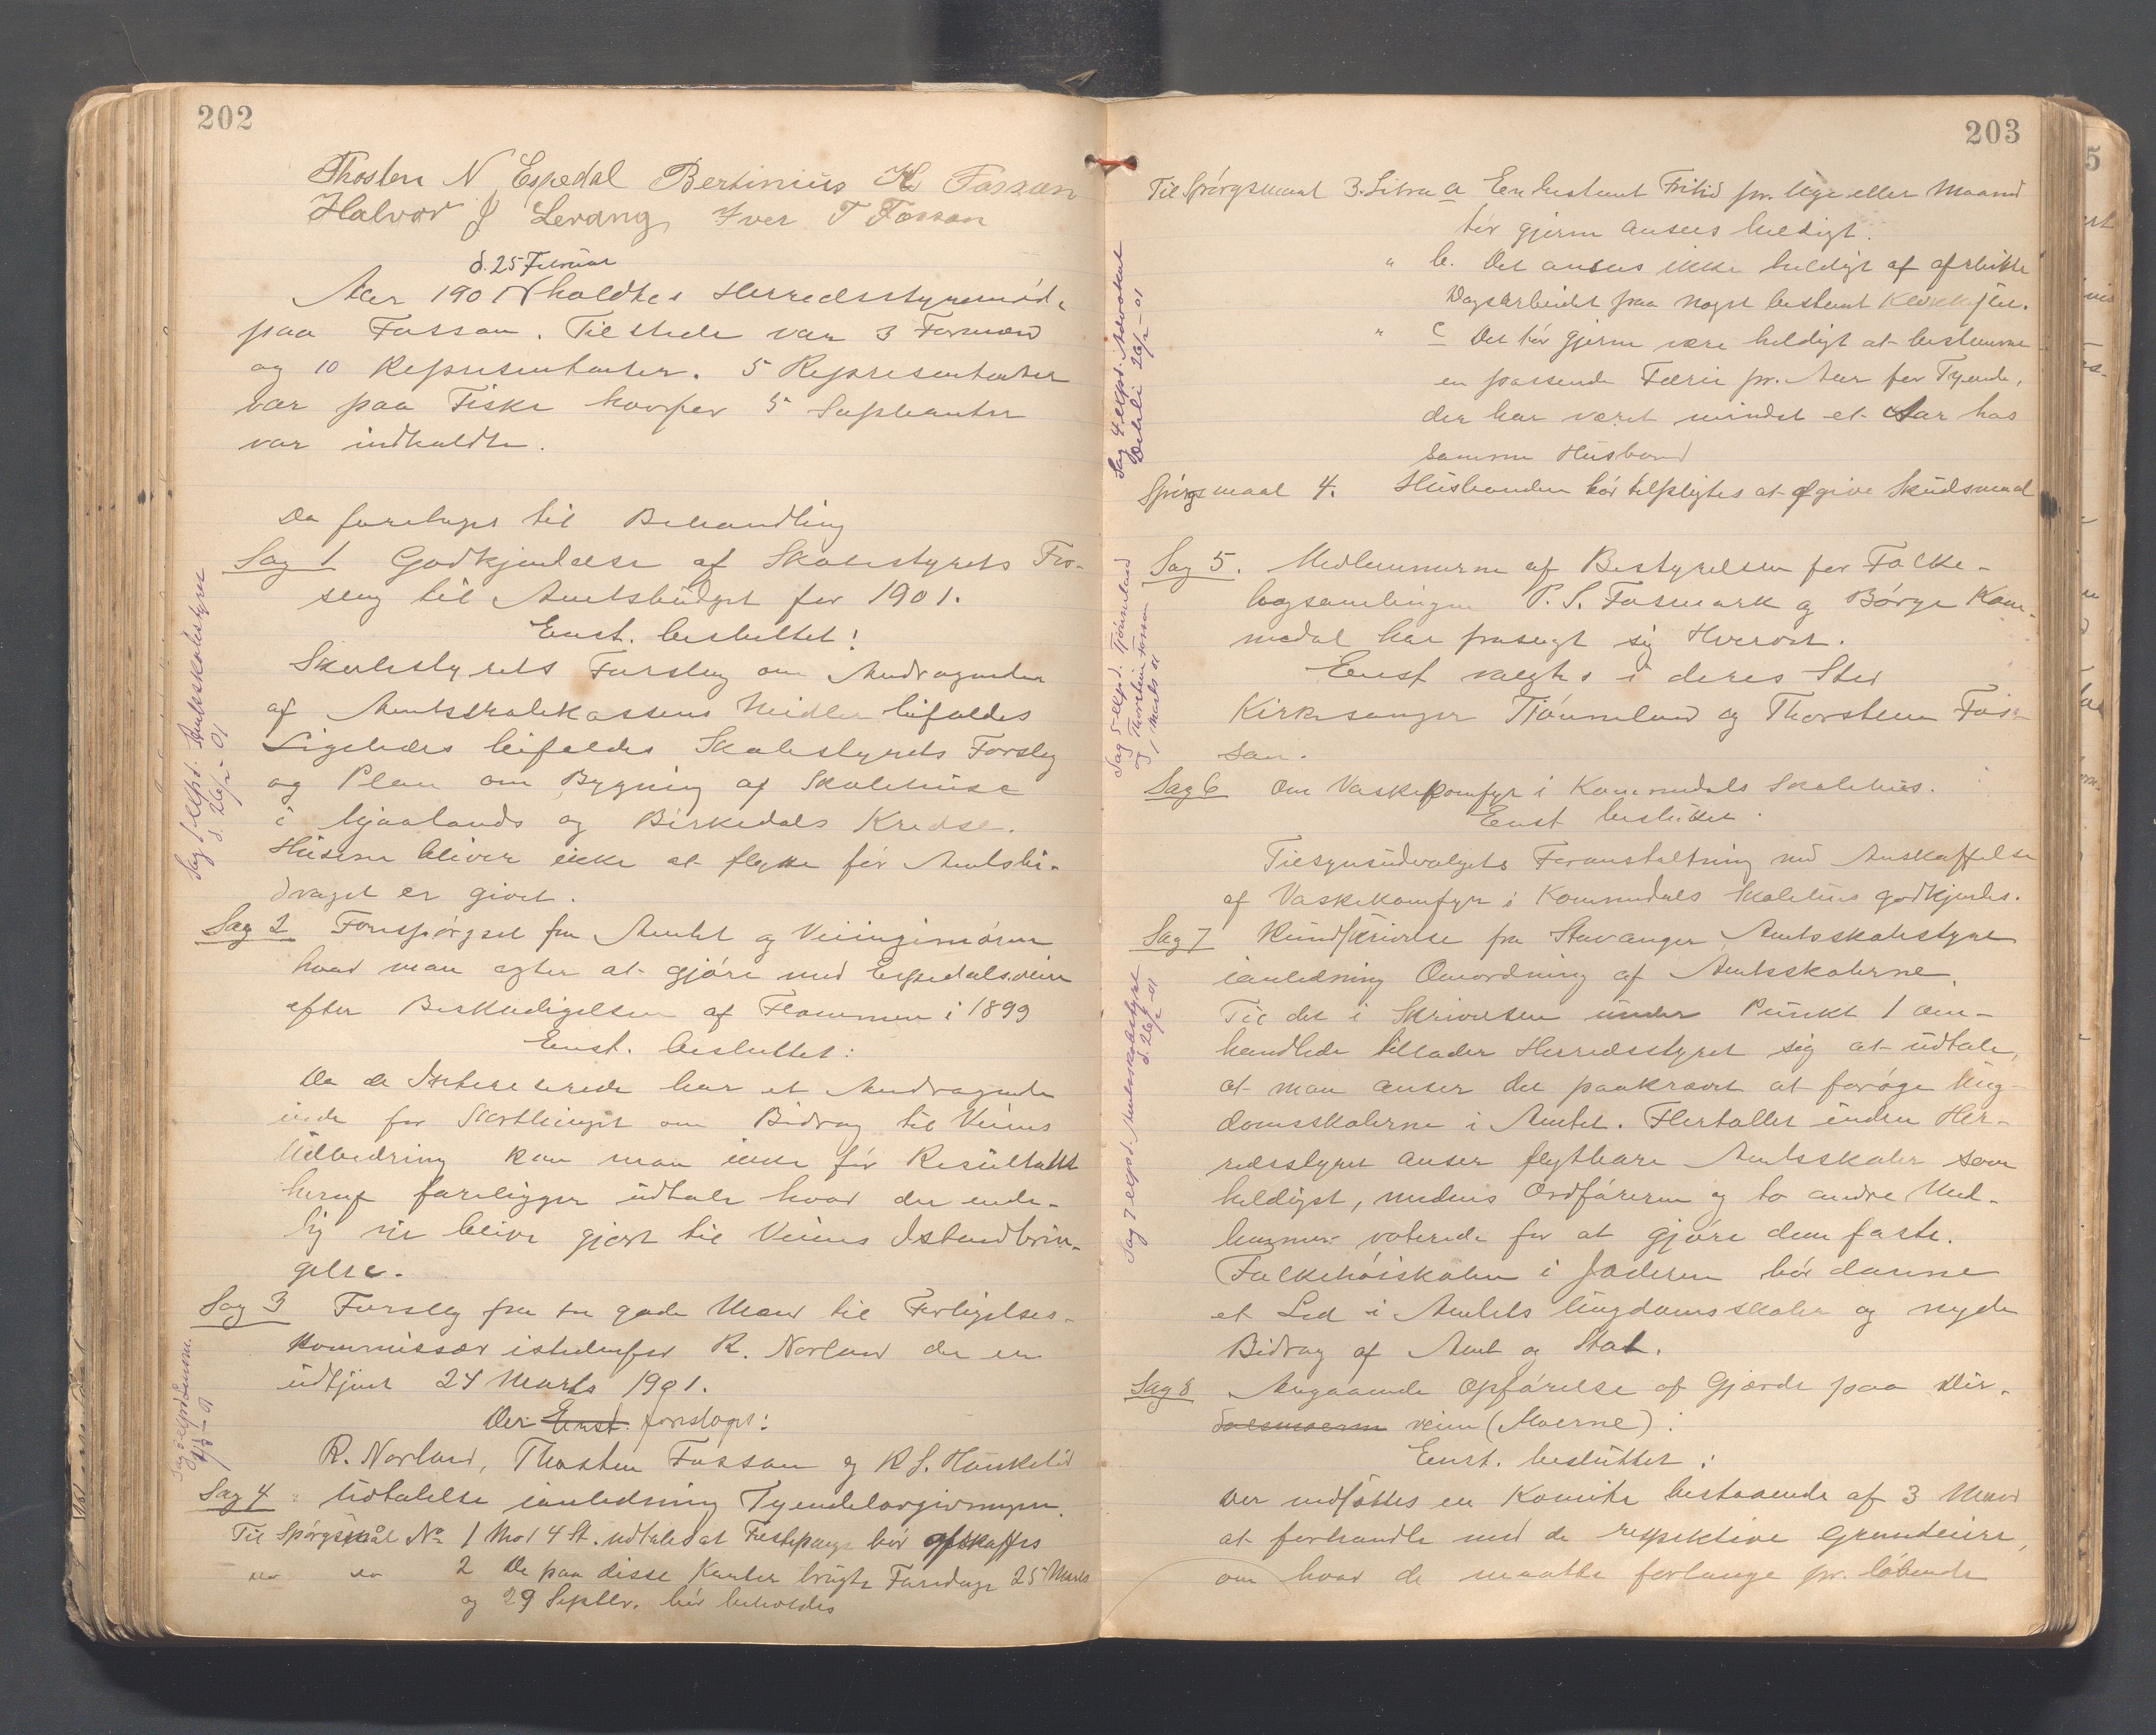 202
Thosten N Espedal Bertinius K Fossan
Halvor J Levang, Iver T Fossan
d. 25 Februar
Aar 1901 holdtes Herredsstyremøde
paa Fossan. Tilstede var 3 Formænd
og 10 Repræsentanter. 5 Repræsentanter
var paa Fiske hvorfor 5 Suplianter
var indkaldte.
Da foretoges til Behandling
Sag 1 Godkjendelse af Skolestyrets For-
slag til Amtsbudget for 1901.
Enst. besluttet:
Skolestyrets Forslag om Andragender
af Amtsskolekassens Midler bifaldes
Ligeledes bifaldes Skolestyrets Forslag
og Plan om Bygning af Skolehuse
i Mjaalands og Birkedals Kredse.
Husene bliver ikke at flytte før Amtsbi-
draget er givet.
Sag 2 Forespørgsel fra Amtet og Veiingeniøren
hvad man agter at gjøre med Espedalsveien
efter Beskadigelsen af Flommen i 1899
Enst. besluttet:
Da de Interesserede har et Andragende
inde for Storthinget om Bidrag til Veiens
Udbedring kan man ikke før Resultatet
heraf foreligger udtale hvad der ende-
lig vil blive gjort til Veiens Istandbrin-
gelse.
Sag 3 Forslag fra tre gode Mænd til Forligelses-
kommissær istedenfor R. Norland der er
udtjent 24 Marts 1901.
Der Enst. foresloges:
R. Norland, Thosten Fossan og R S. Haukelid
Sag 4 Udtalelse ianledning Tyendelovgivningen.
Til Spørgsmål No 1 Mod 4 St. udtales at Festepenge bør afskaffes
do do 2 De paa disse Kanter brugte Faredage 25 Marts
og 29 Septbr. bør beholdes
Sag 1 exped. Amtsskolestyre
d. 26/2 01
Sag 3 exped
203
Til Spørgsmaal 3. Litra a En bestemt Fritid pr. Uge eller Maaned
tør gjerne ansees heldigt.
" b. Det ansees ikke heldigt af afslutte
Dagsarbeidet paa noget bestemt Klokkeslet.
" c Det tør gjerne være heldigt at bestemme
en passende Ferie pr. Aar for Tyende,
der har været mindst et Aar hos
samme Husbond
Spørgsmaal 4. Husbonden bør tilpligtes at afgive Skudsmaal
Sag 5. Medlemmerne af Bestyrelsen for Folke-
bogsamlingen P. S. Fosmark og Børge Kom-
medal har frasagt sig Hvervet.
Enst valgtes i deres Sted
Kirkesanger Tjønneland og Thorsten Fos-
san.
Sag 6 Om Vaskekomfyr i Kommedals Skolehus.
Enst besluttet.
Tilsynsudvalgets Foranstaltning med Anskaffelse
af Vaskekomfyr i Kommedals Skolehus godkjendes.
Sag 7 Rundskrivelse fra Stavanger Amtsskolestyre
ianledning Omordning af Amtsskolerne.
Til det i Skrivelsen under Punkt 1 om-
handlede tillader Herredsstyret sig at udtale,
at man anser det paakrævet at forøge Ung-
domsskolerne i Amtet. Flertallet inden Her-
redsstyret anser flytbare Amtsskoler som
heldigst, medens Ordføreren og to andre Med-
lemmer voterede for at gjøre dem faste.
Folkehøiskolen i Jæderen bør danne
et Led i Amtets Ungdomsskoler og nyde
Bidrag af Amt og Stat.
Sag 8 Angaaende Opførelse af Gjærde paa Dir-
dalsmoerne veien (Moerne):
Enst. besluttet:
Der nedsættes en Komite bestaaende af 3 Mand
at forhandle med de respektive Grundeiere,
om hvad de maatte forlange pr. løbende
Sag 4 exped. Advokat
26/2 - 01
Sag 5 exped. Tjønneland
og Thorstein Fossan
1 Marts 01
Sag 7 exped. Amtsskolestyre
d. 26/2 - 01